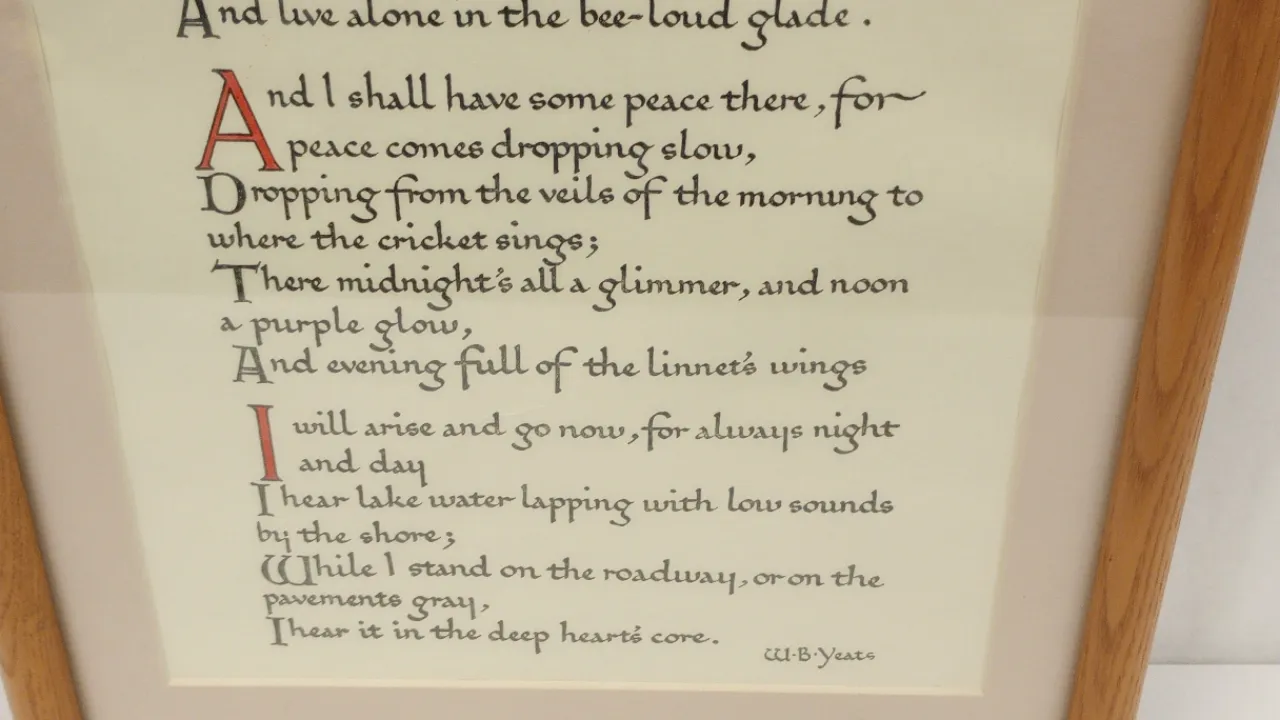 And live alone in the bee-loud glade .
And I shall have some peace there, for
peace comes dropping slow,
Dropping from the veils of the morning to
where the cricket sings;
There midnight's all a glimmer, and noon
a purple glow,
And evening full of the linnet's wings
I will arise and go now, for always night
and day
I hear lake water lapping with low sounds
by the shore;
While I stand on the roadway, or on the
pavements gray,
I hear it in the deep heart's core.
W·B·Yeats